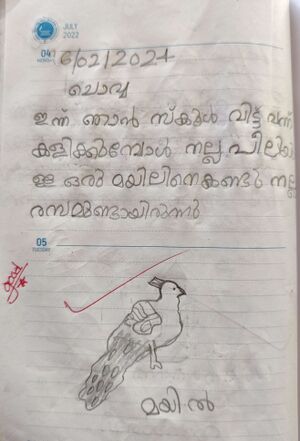 JULY
2022
04
MONDAY
6/02/2024
ചൊവ്വ
ഇന്ന് ഞാൻ സ്കൂൾ വിട്ട് വന്ന്
കളിക്കുമ്പോൾ നല്ല പീലിയു
ള്ള ഒരു മയിലിനെകണ്ടു നല്ല
രസമുണ്ടായിരുന്നു
05
TUESDAY
മയിൽ